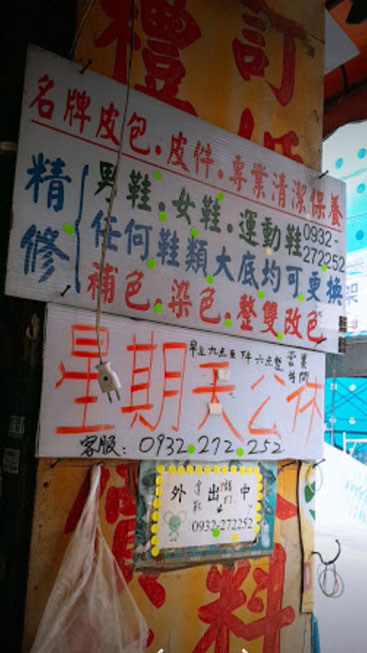 禮
訂
名牌皮包.皮件.專業清潔保養
精修
男鞋.女鞋.運動鞋
0932-272252
任何鞋類大底均可更換
補色.染色.整雙改色
早上九點至下午六點整
營業時間
星期天公休
客服:0932.272.252
外出中
0932-272252
料